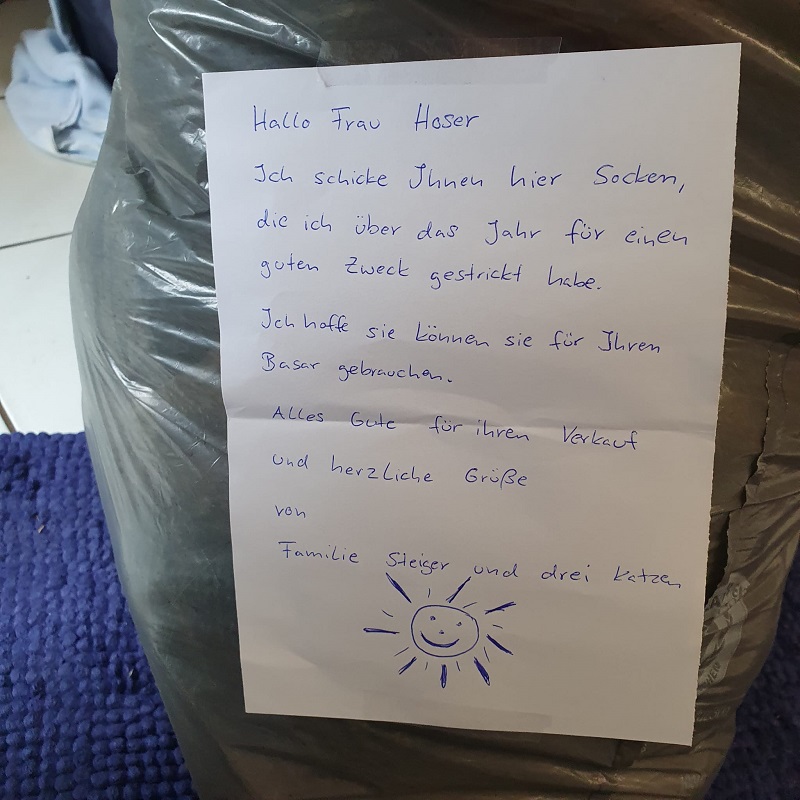 Hallo Frau Hoser
Ich schicke Ihnen hier Socken,
die ich über das Jahr für einen
guten Zweck gestrickt habe.
Ich hoffe sie können sie für Ihren
Basar gebrauchen.
Alles Gute für ihren Verkauf
und herzliche Grüße
von
Familie Steiger und drei Katzen